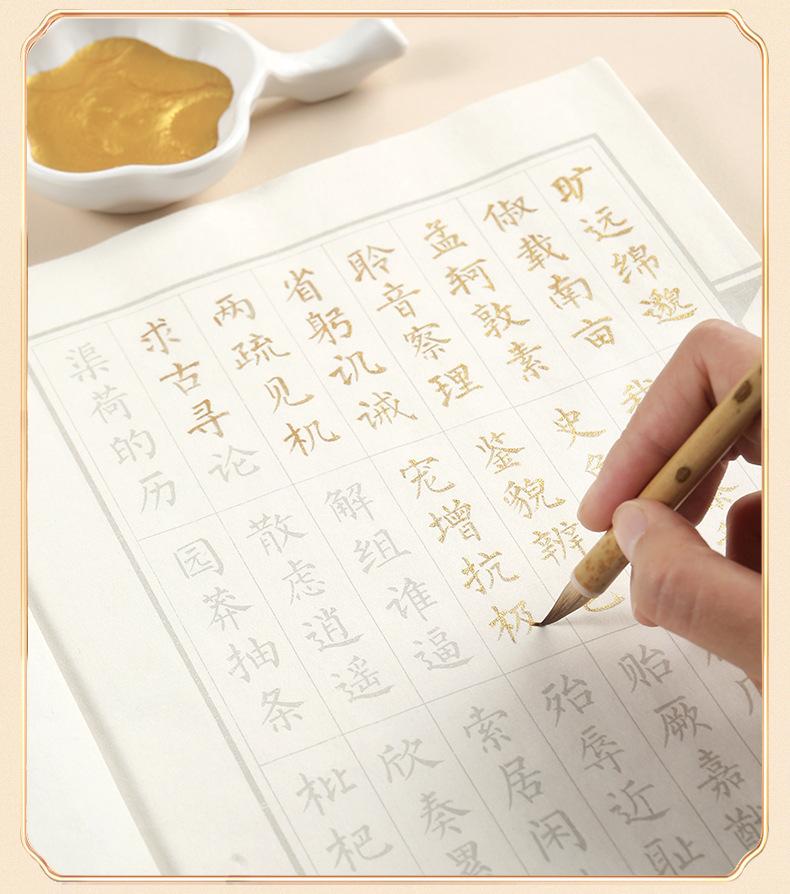 旷远绵邈
俶载南亩 我
孟轲敦素 史
聆音察理 鉴貌辨 贻厥嘉猷
省躬讥诫 宠增抗极 殆辱近耻
两疏见机 解组谁逼 索居闲
求古寻论 散虑逍遥 欣奏累
渠荷的历 园莽抽条 枇杷